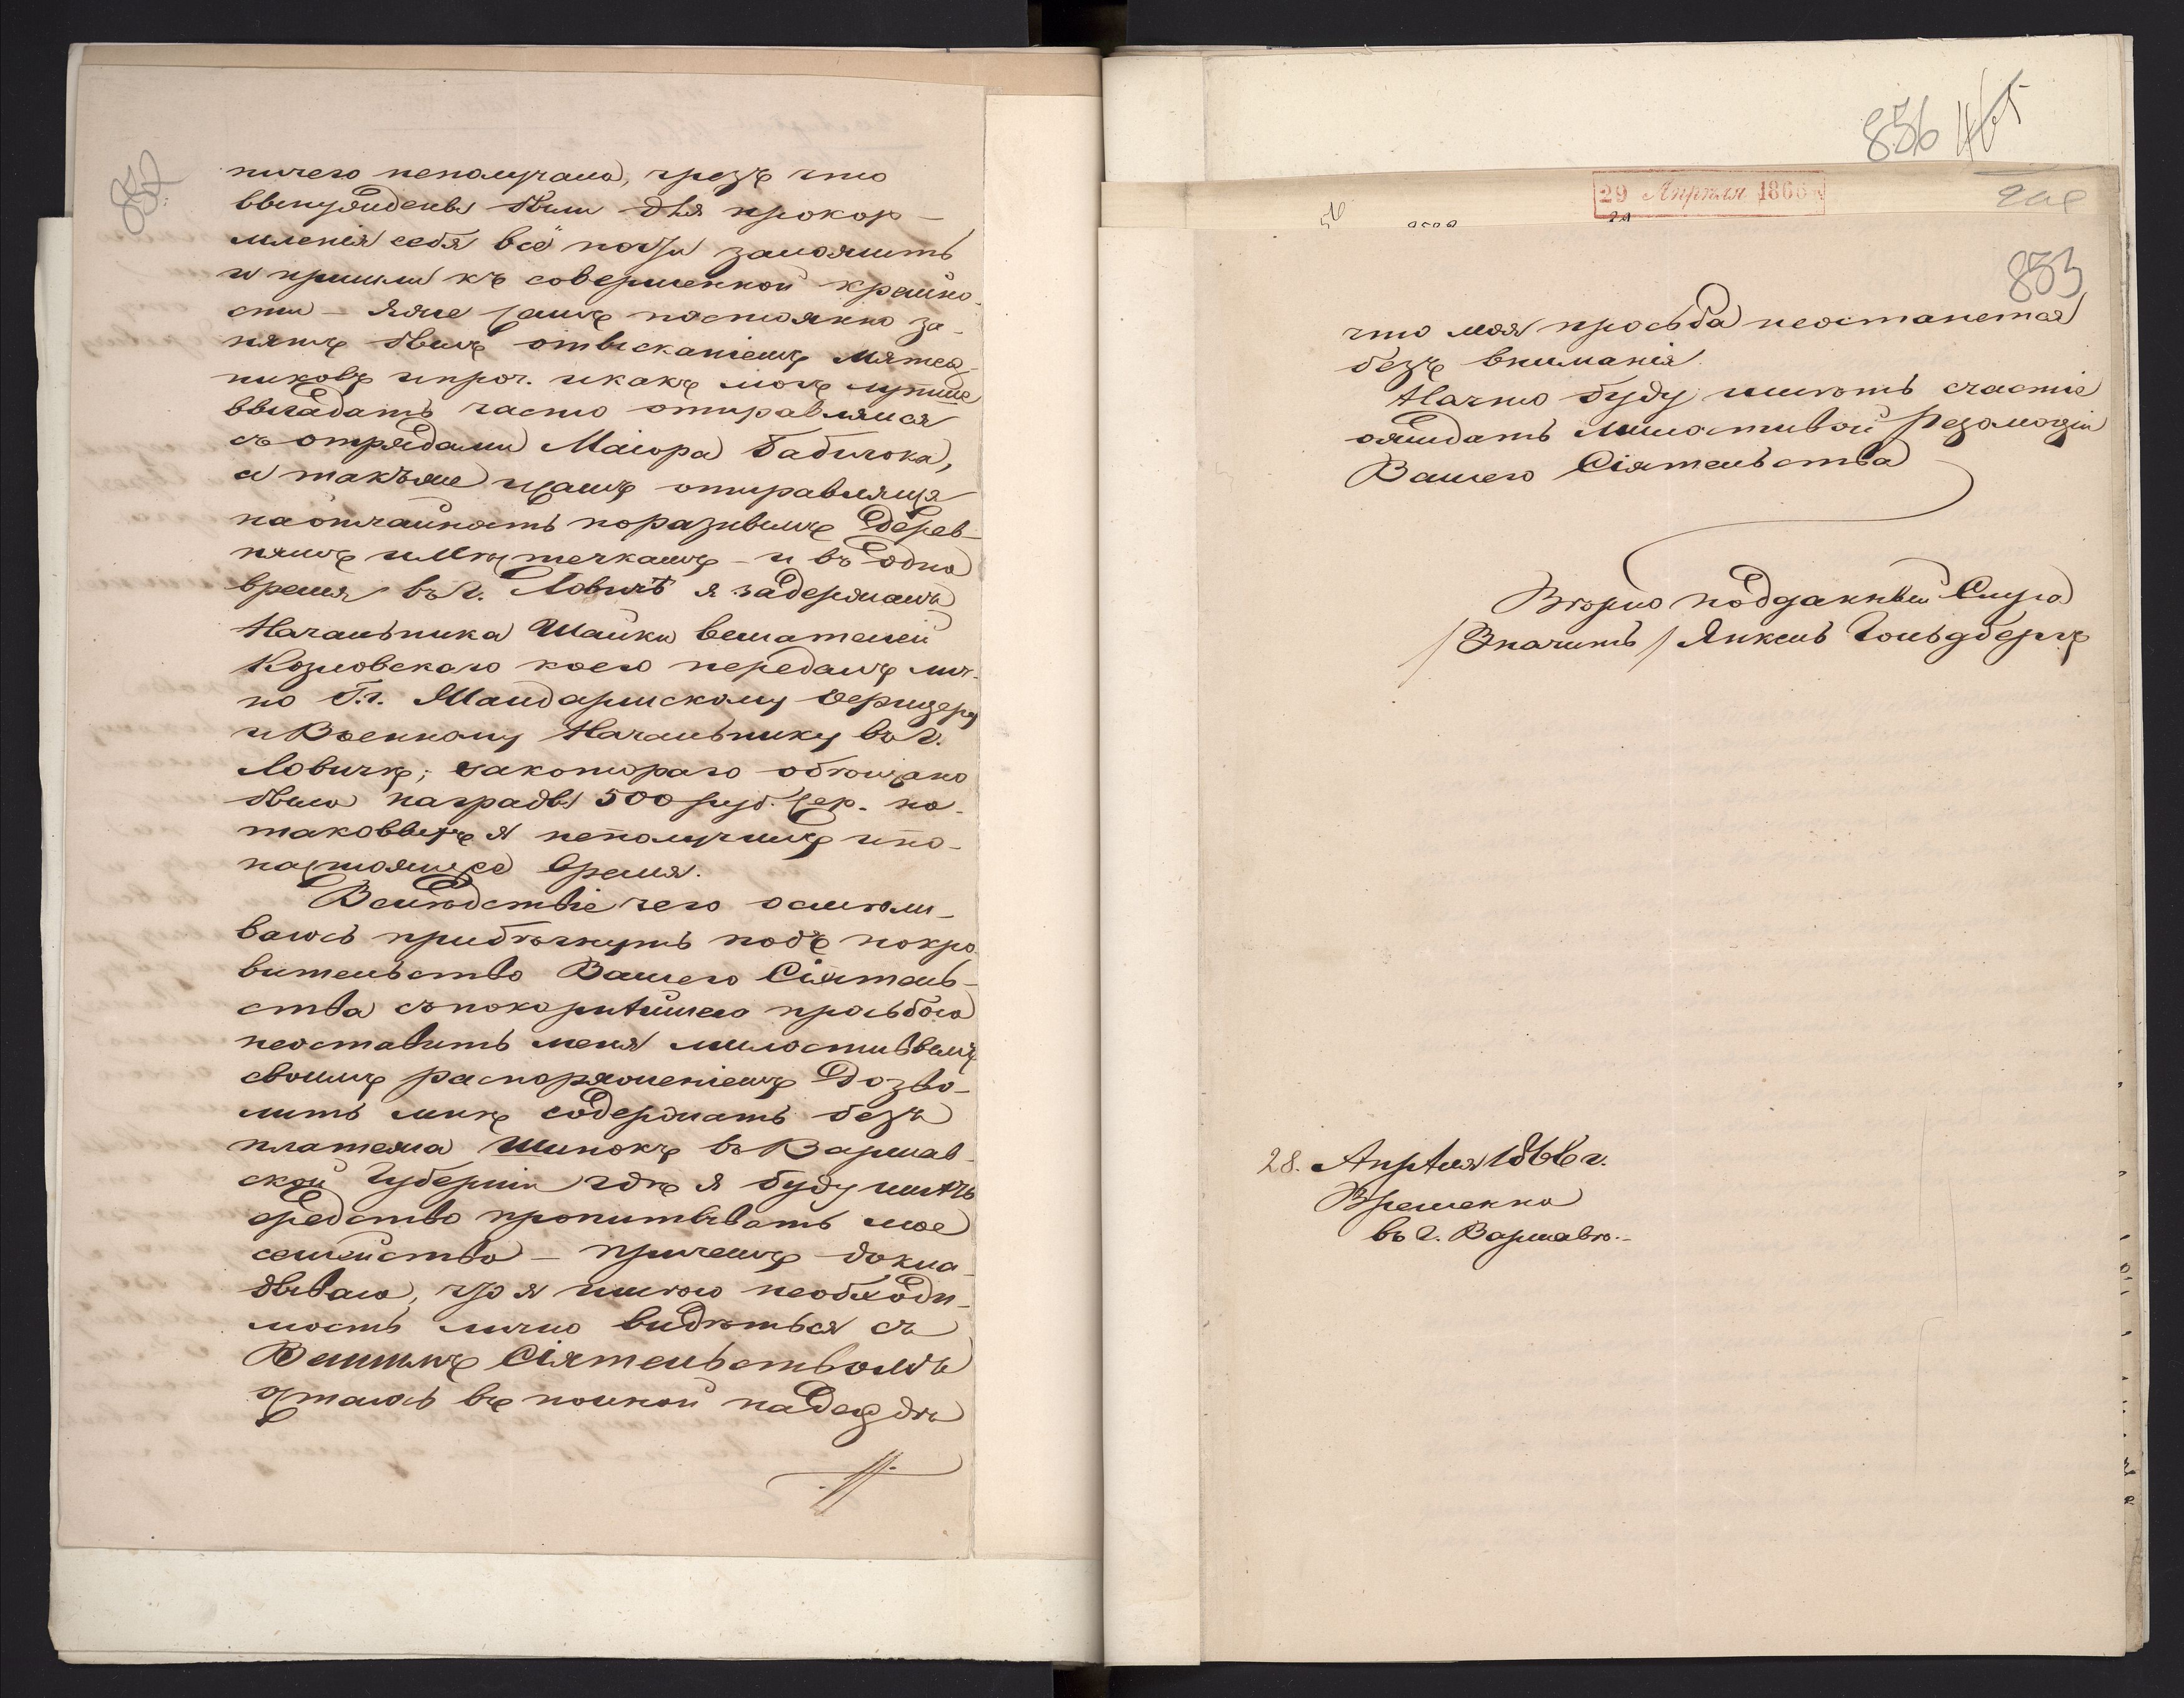 852
ничего неполучала, чрезъ что
ввынуждены были для прокор-
мленія себя всё почти заложить
и пришли къ совершенной крайно-
сти - Яже самъ постоянно за-
нятъ былъ отысканіемъ мятеж-
никовъ ипроч. икакъ могъ лутше
ввыгадать часто отправлялся
съ отрядами Маіора Бабилока,
а такъже и самъ отправлялся
наотчайность поразнымъ дерев-
нямъ имѣстечкамъ - и въ одно
время въ г. Ловичѣ я задержалъ
Начальника Шайки вешателей
Козловскаго коего передалъ лич-
но Г.г. Жандармскому Офицеру
и Военному Начальнику въ г.
Ловичѣ; закотораго обѣщано
было награды 500 руб. сер. но
таковыхъ я неполучилъ ипо-
настоящее время.
Вслѣдствіе чего осмѣли-
ваюсь прибѣгнуть подъ покро
вительство Вашего Сіятель-
ства съпокорнѣйшею просьбою
неоставить меня милостиввымъ
своимъ распоряженіемъ дозво-
лить мнѣ содержать безъ
платежа Шинокъ въ Варшав-
ской Губерніи гдѣ я буду имѣть
средство пропитывать мое
семейство - причемъ докла-
дываю, что я имѣю необходи-
мость лично видѣться съ
Вашимъ Сіятельствомъ
остаюсь въ полной надеждѣ
856 465
29 Апрѣля 1866
853
что моя просьба неостанется
безъ вниманія.
Начто буду имѣть счастіе
ожидать милостивой Резолюціи
Вашего Сіятельства
Вѣрно подданный Слуга
/Значитъ/ Янкель Гольдбергъ
28. Апрѣля 1866 г.
Временно
въ г. Варшавѣ.-